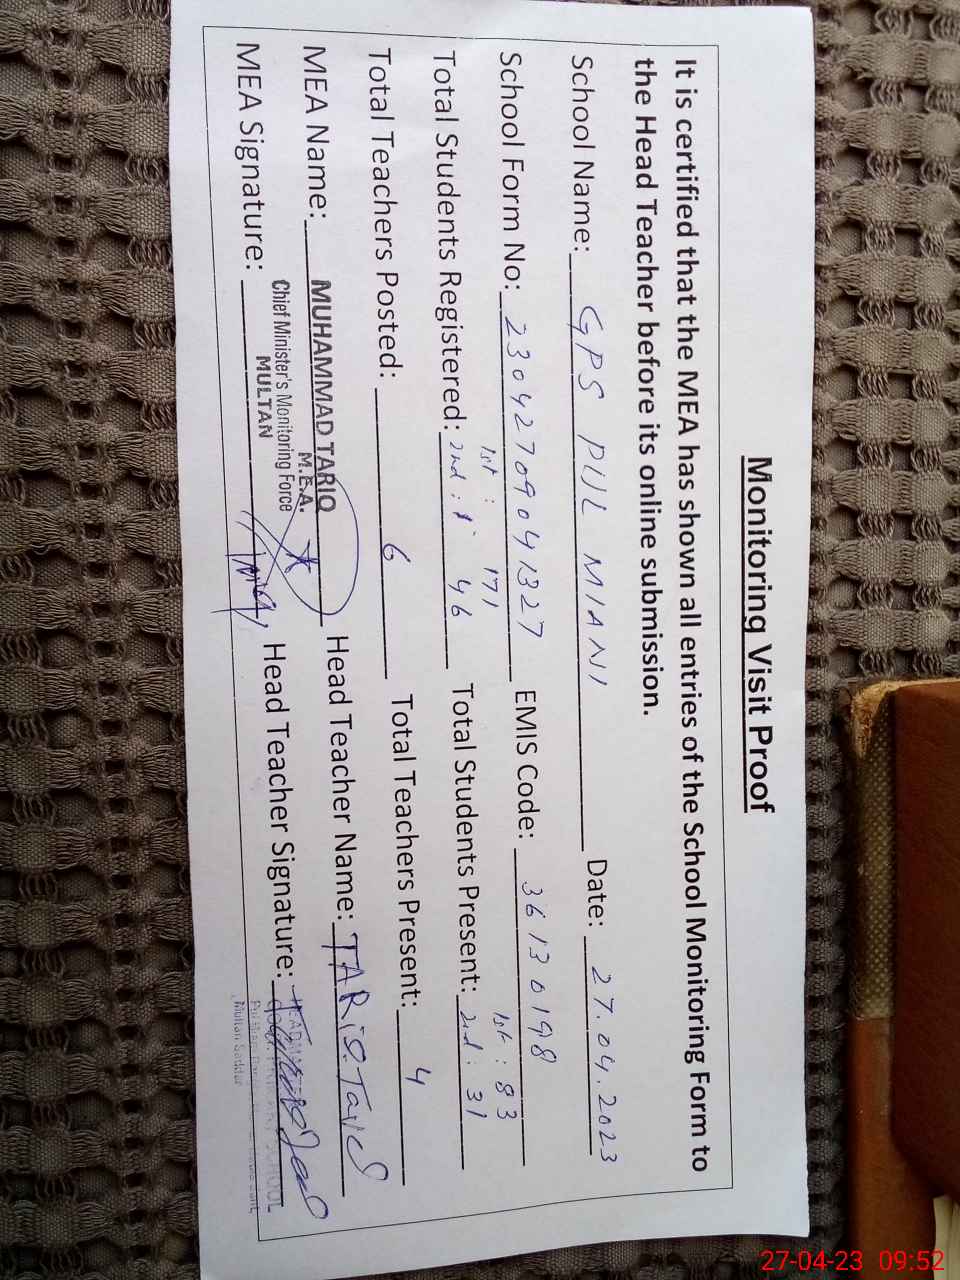 Monitoring Visit Proof
It is certified that the MEA has shown all entries of the School Monitoring Form to
the Head Teacher before its online submission.
School Name: GPS PUL MIANI Date: 27.04.2023
School Form No: 23042709041327 EMIS Code: 36130198
1st: 171 1st: 83
Total Students Registered: 2nd: 46 Total Students Present: 2nd: 31
Total Teachers Posted: 6 Total Teachers Present: 4
MEA Name: MUHAMMAD TARIQ Head Teacher Name: TARiQ
M.E.A.
Chief Minister's Monitoring Force
MULTAN
MEA Signature: Head Teacher Signature:
SCHOOL
Multan Saddar
27-04-23 09:52